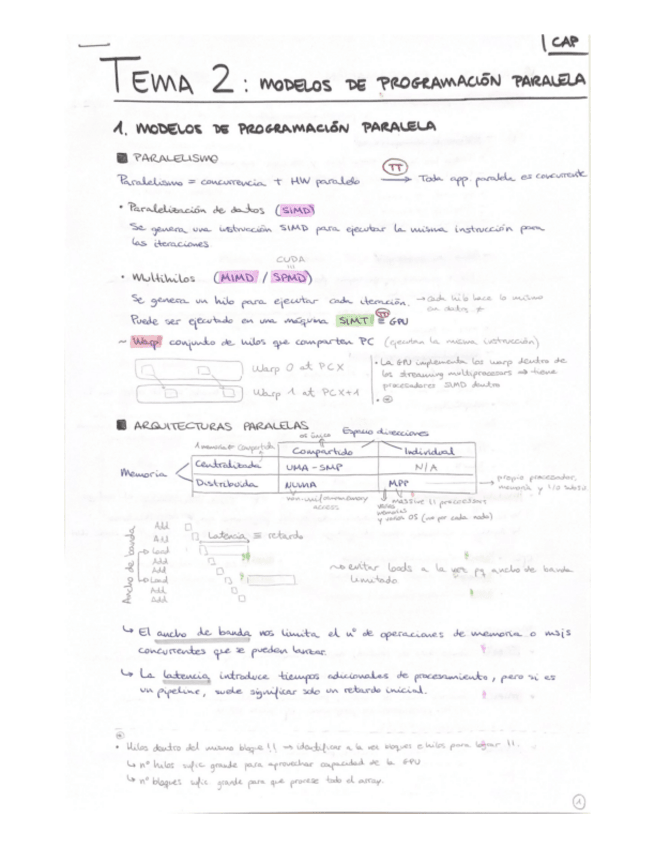 CAP
TEMA 2: MODELOS DE PROGRAMACIÓN PARALELA
1. MODELOS DE PROGRAMACIÓN PARALELA
PARALELISMO
Paralelismo = concurrencia + HW paralelo → Toda app. paralela es concurrente
TT
• Paralelización de datos (SIMD)
Se genera una instrucción SIMD para ejecutar la misma instrucción para
las iteraciones.
CUDA
• Multihilos (MIMD / SPMD)
Se genera un hilo para ejecutar cada iteración. → cada hilo hace lo mismo
en datos ≠
Puede ser ejecutado en una máquina SIMT ≡ GPU
TT
~ Warp conjunto de hilos que comparten PC (ejecutan la misma instrucción)
Warp 0 at PCX
Warp 1 at PCX+1
• La GPU implementa los warp dentro de
los streaming multiprocesors ⇒ tiene
procesadores SIMD dentro
• *
ARQUITECTURAS PARALELAS
Espacio direcciones
1 memoria compartida
Compartido Individual
Memoria
Centralizada UMA - SMP N/A
Distribuida NUMA MPP
→ propio procesador,
memoria y
non-uniform memory
access
massive || processors
varias
memorias
y varios OS (uno por cada nodo)
Ancho de banda
Add
Add
Load
Add
Add
Load
Add
Add
Latencia ≡ retardo
~ evitar loads a la vez pq ancho de banda
limitado
↳ El ancho de banda nos limita el nº de operaciones de memoria o msjs
concurrentes que se pueden lanzar.
↳ La latencia introduce tiempos adicionales de procesamiento, pero si es
un pipeline, suele significar solo un retardo inicial.
*
• Hilos dentro del mismo bloque || → identificar a la vez bloques e hilos para ||.
↳ nº hilos sufic grande para aprovechar capacidad de la GPU
↳ nº bloques sufic. grande para que procese todo el array.
1